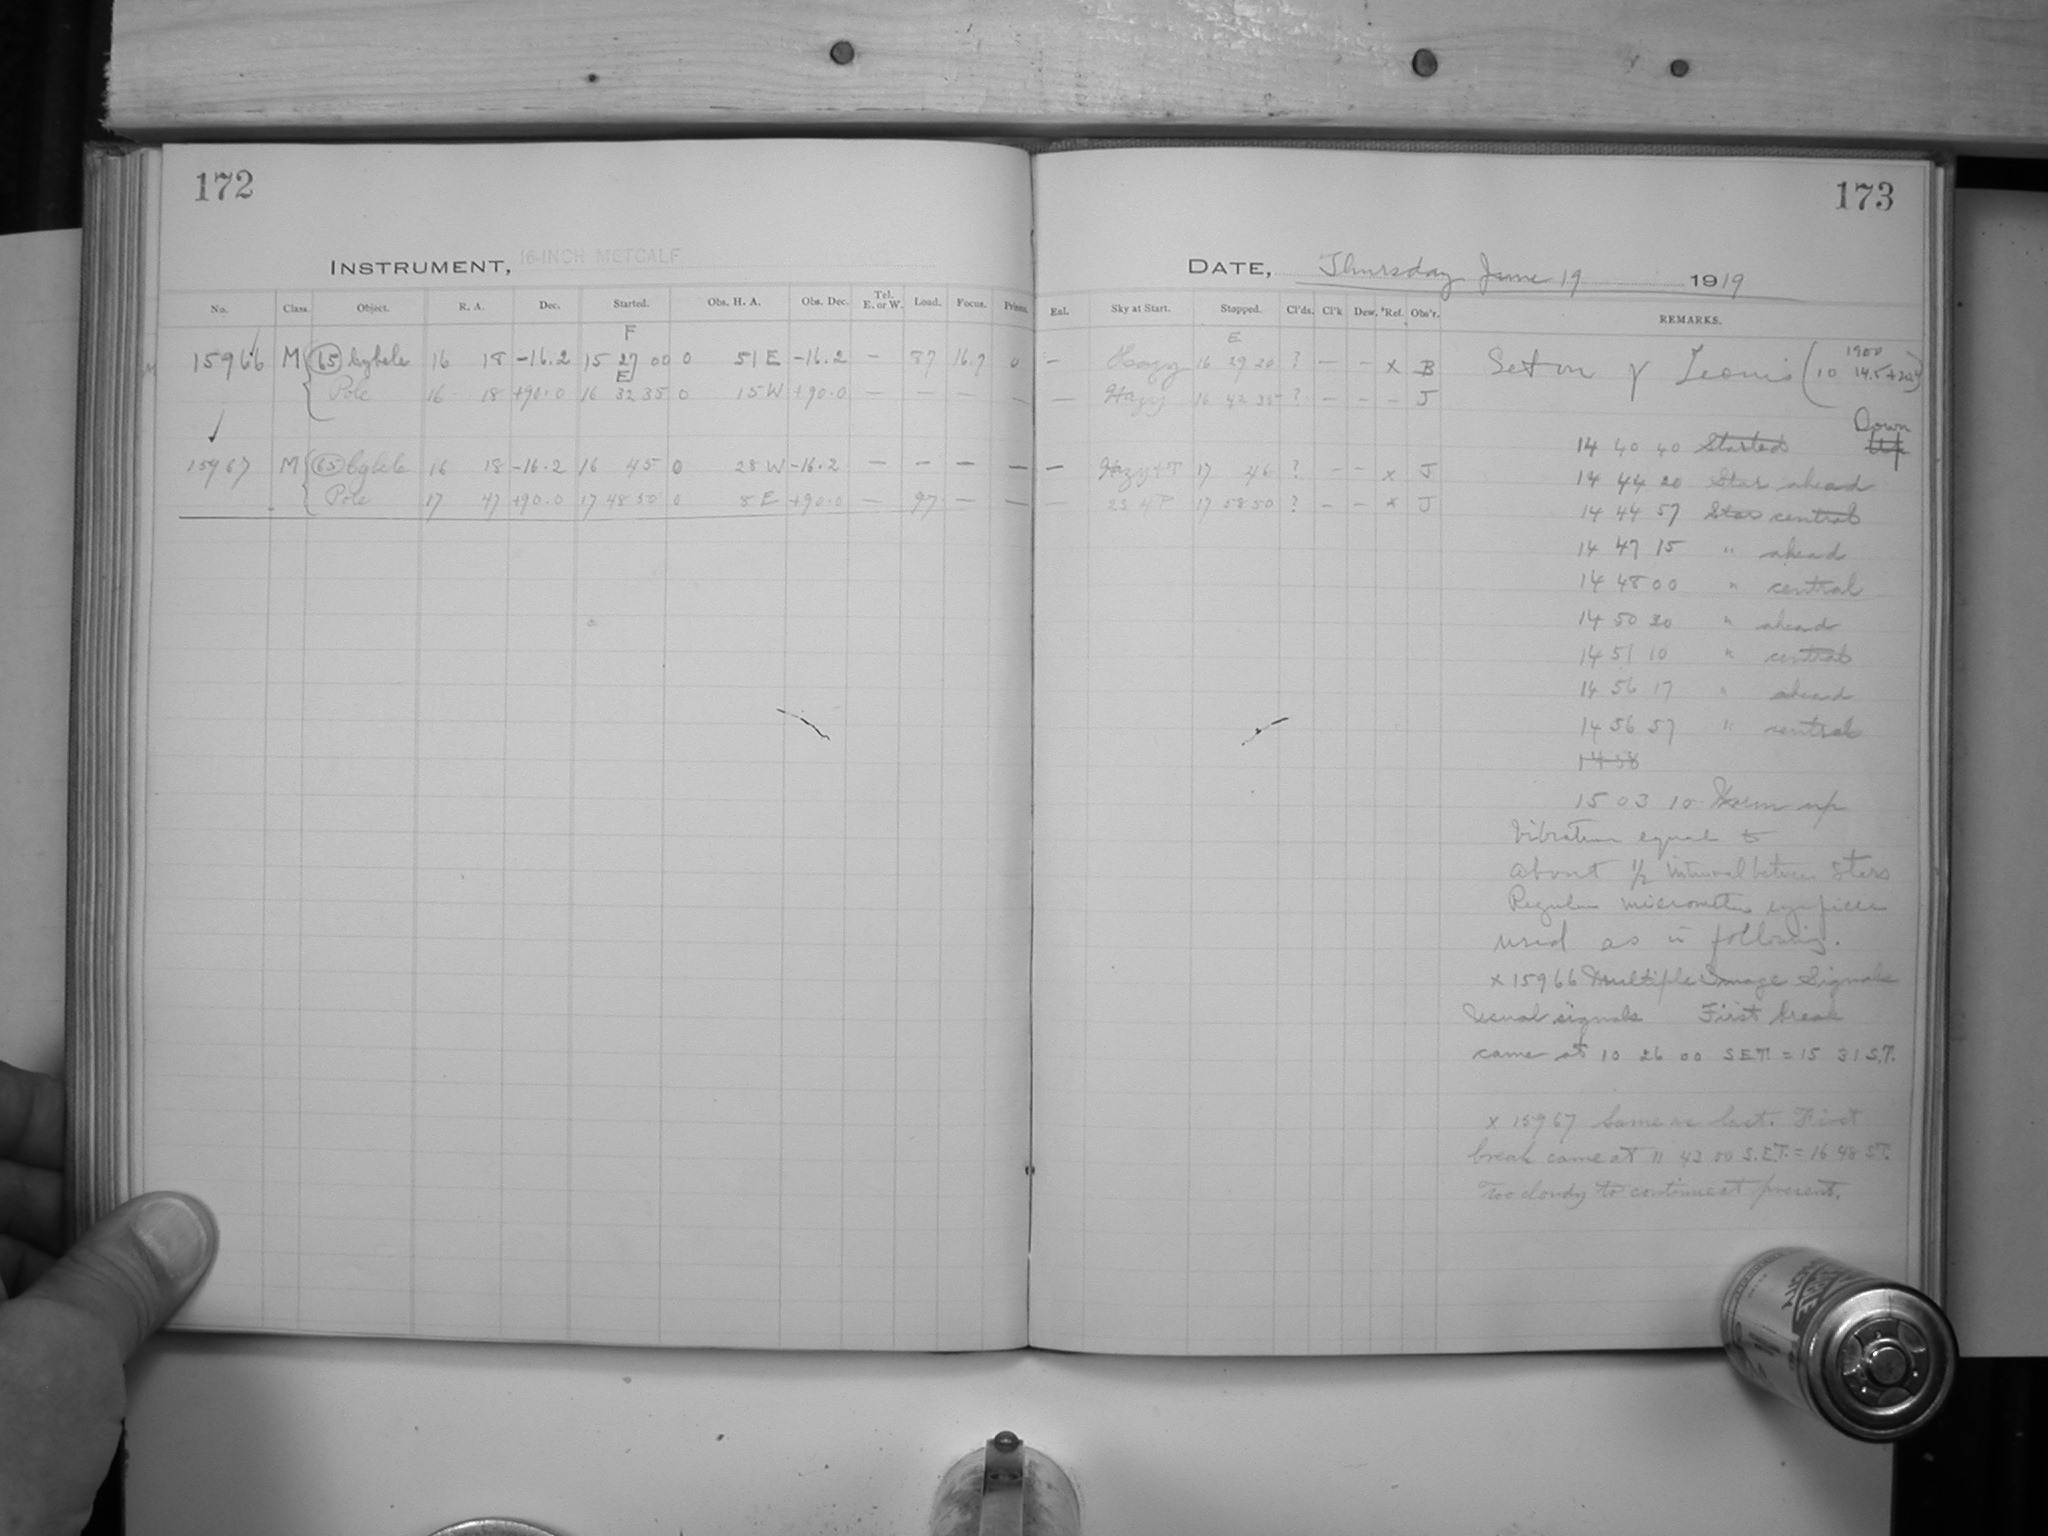 172
173
INSTRUMENT, 16-INCH METCALF
DATE, Thursday June 19 1919
No. Class. Object. R. A. Dec. Started. Obs. H. A. Obs. Dec. Tel. E. or W. Load. Focus. Prisms. Eal. Sky at Start. Stopped. Cl'ds. Cl'k Dew. Ref. Obs'r. REMARKS.
F E
15966 M (65) Cybele 16 18 -16.2 15 27 00 0 51 E -16.2 — 87 16.7 0 — Hazy 16 29 20 ? — — x B
E
Pole 16 18 +90.0 16 32 35 0 15 W +90.0 — — — — — Hazy 16 42 35 ? — — — J
15967 M (65) Cybele 16 18 -16.2 16 45 0 28 W -16.2 — — — — — Hazy 17 46 ? — — x J
Pole 17 47 +90.0 17 48 50 0 8 E +90.0 — 97 — — — 17 58 50 ? — — x J
Set on γ Leonis (1900
10 14.5
Down
14 40 40 Started Up
14 44 20 Star ahead
14 44 57 Star central
14 47 15 " ahead
14 48 00 " central
14 50 30 " ahead
14 51 10 " central
14 56 17 " ahead
14 56 57 " central
14 58
15 03 10 up
Vibration equal to
about 1/2 interval between stars
Regular micrometer eyepiece
used as in following.
x 15966 Multiple Image Signals
Usual signals First break
came at 10 26 00 S.E.T. = 15 31 S.T.
x 15967 Same as last. First
break came at 11 43 00 S.E.T. = 16 48 S.T.
Too cloudy to continue at present.